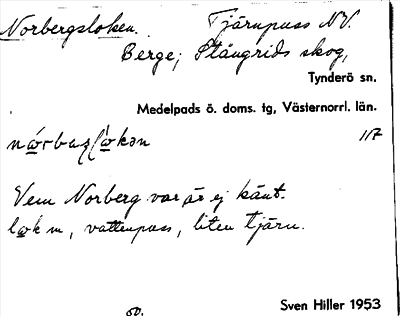 Norbergsloken. Tjärnpuss N.V.
Berge; Stångrids skog,
Tynderö sn.
Medelpads ö. doms. tg, Västernorrl. län.
117
Vem Norberg var är ej känt.
m, vattenpuss, liten tjärn.
50.
Sven Hiller 1953